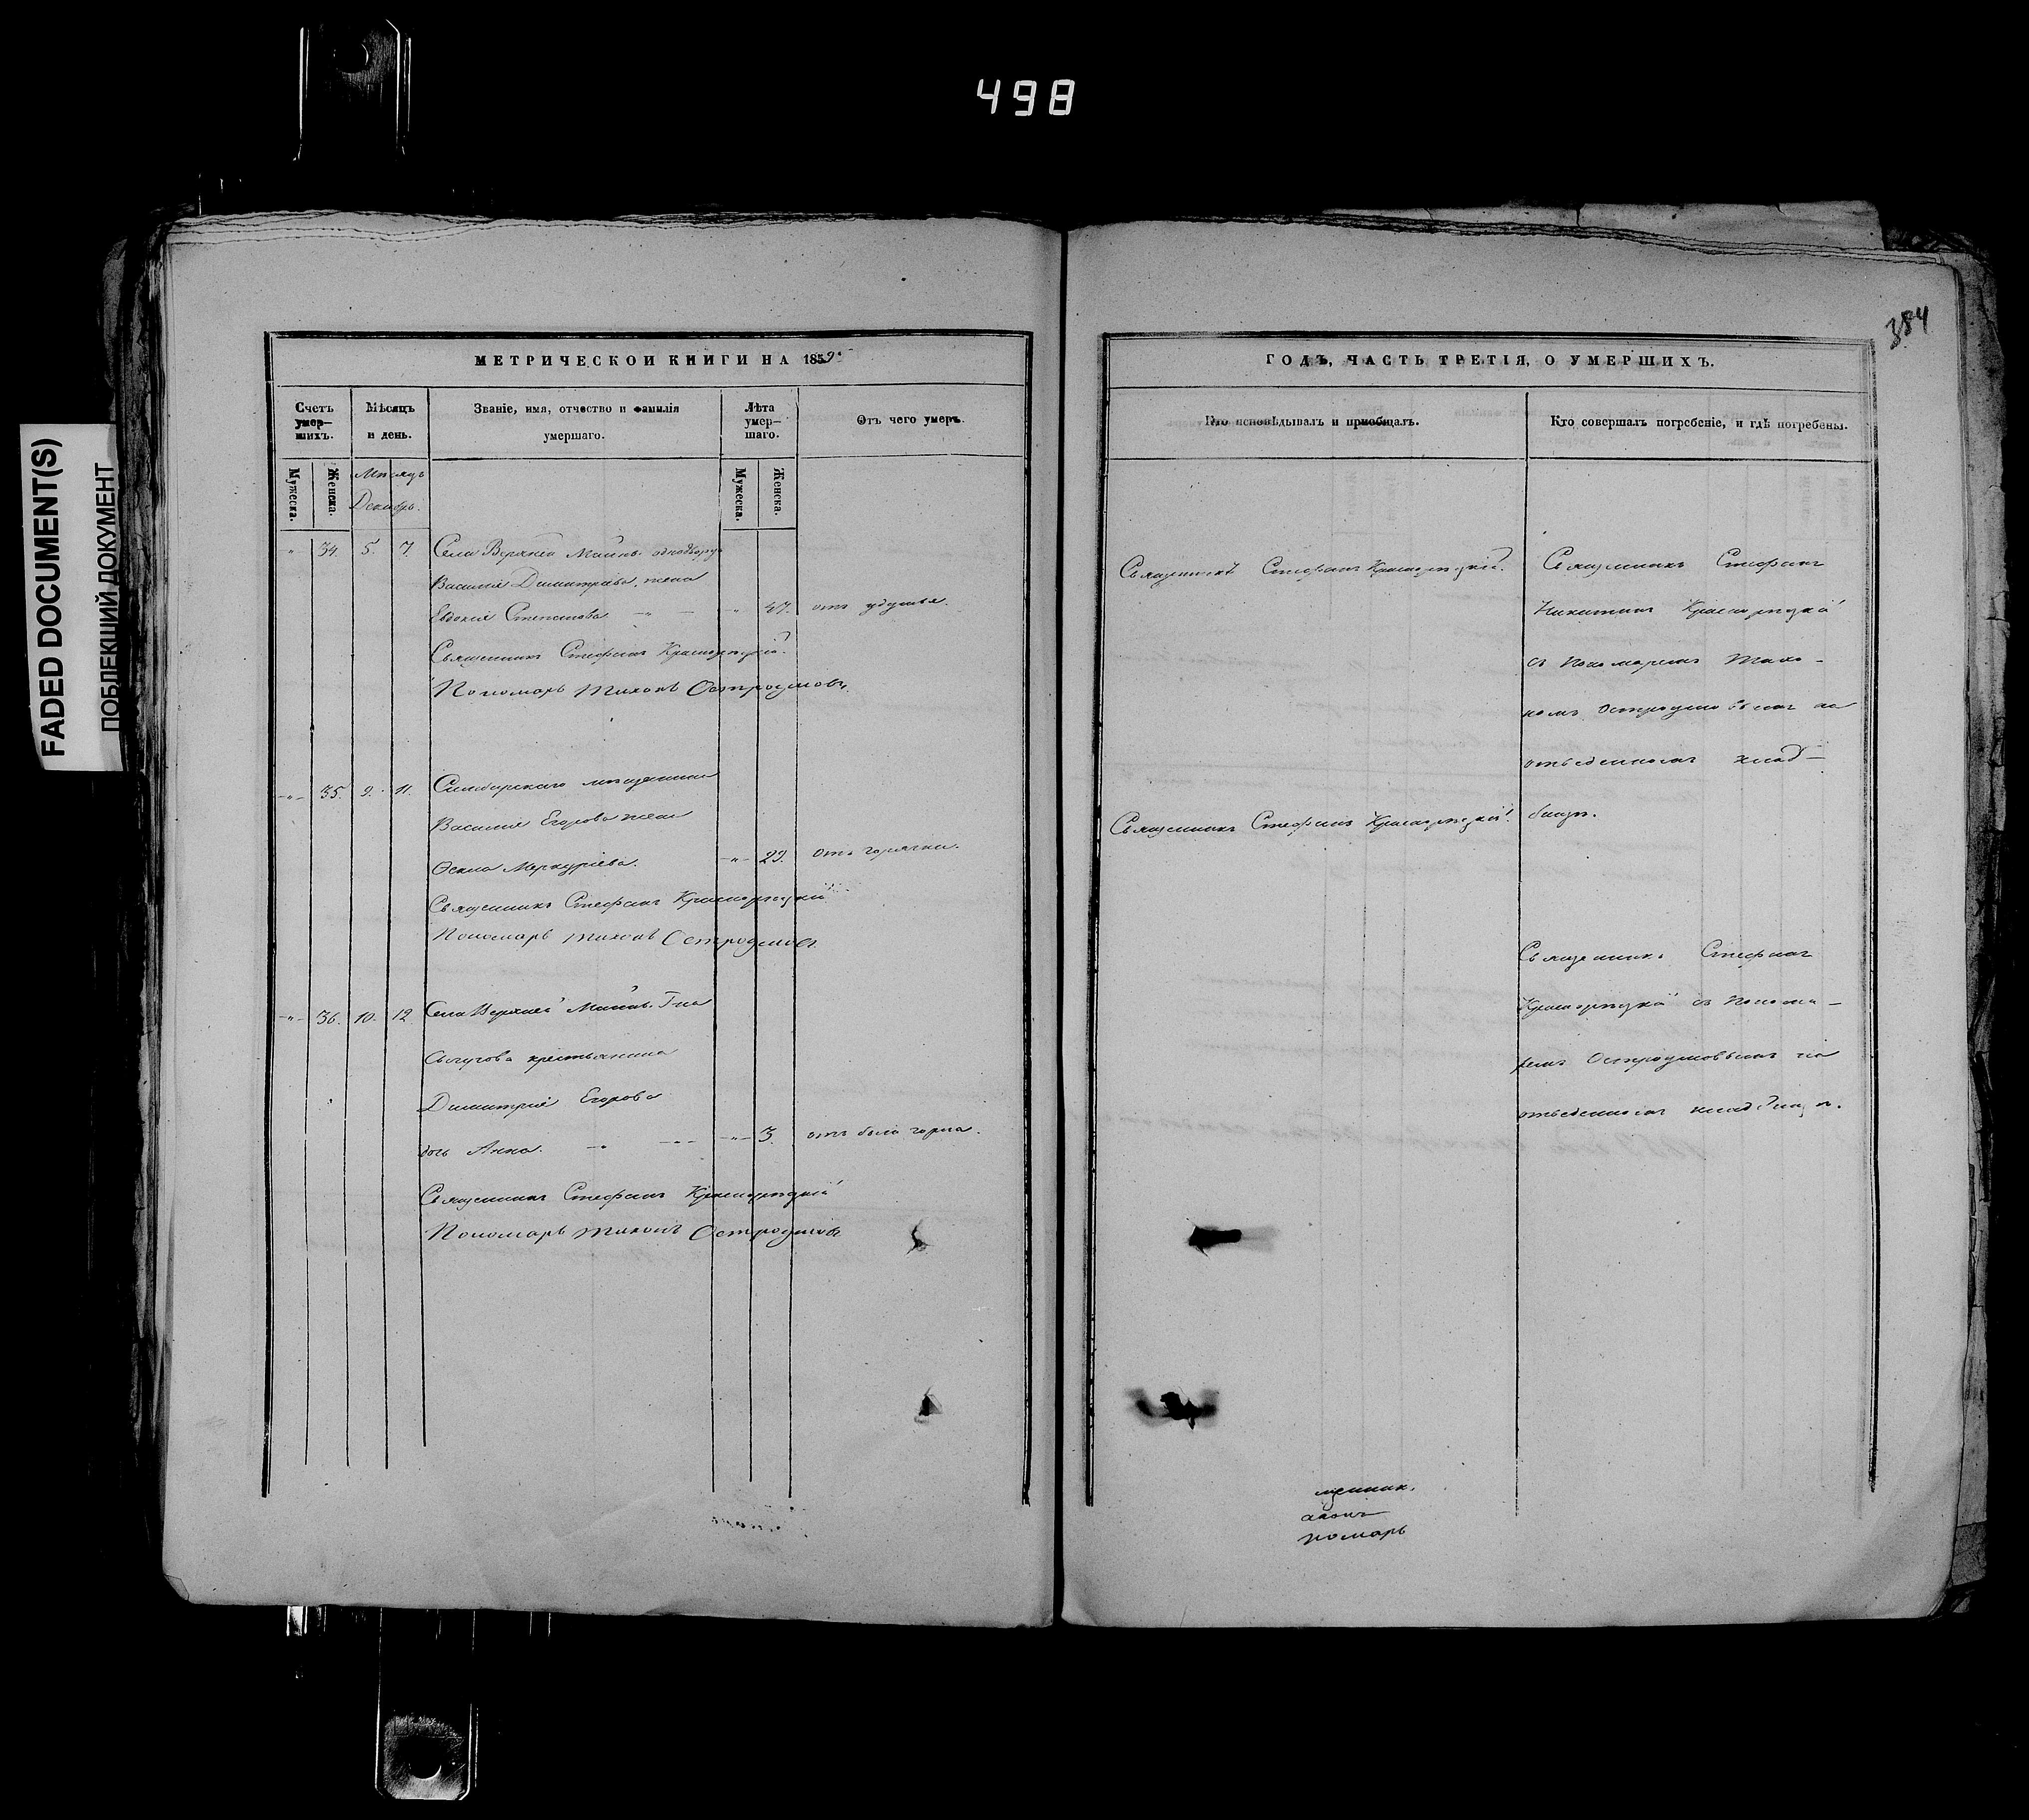 498
FADED DOCUMENT(S)
ПОБЛЕКШИЙ ДОКУМЕНТ
384
МЕТРИЧЕСКОЙ КНИГИ НА 1859.
Счетъ умер-шихъ.
Мѣсяцъ и день.
Званіе, имя, отчество и фамилія умершаго.
Лѣта умер-шаго.
Отъ чего умеръ.
Мужеска.
Женска.
Мѣсяцъ
Декабрь.
Мужеска.
Женска.
„ 34. 5. 7. Села Верхней Майны однодворца
Василія Димитріева жена
Евдокія Степанова — „ — „ 47. отъ удушья.
Священникъ Стефанъ Красноряцкій.
Пономарь Тихонъ Остроумовъ.
„ 35. 9. 11. Симбирскаго мѣщанина
Василія Егорова жена
Ѳекла Меркуріева. „ 29. отъ горячки.
Священникъ Стефанъ Красноряцкій
Пономарь Тихонъ Остроумовъ.
„ 36. 10. 12. Села Верхней Майны Г-на
крестьянина
Димитрія Егорова
дочь Анна. „ 3. отъ боли горла.
Священникъ Стефанъ Красноряцкій
Пономарь Тихонъ Остроумовъ
ГОДЪ, ЧАСТЬ ТРЕТІЯ, О УМЕРШИХЪ.
Кто исповѣдывалъ и пріобщалъ.
Кто совершалъ погребеніе, и гдѣ погребены.
Священникъ Стефанъ Красноряцкій.
Священникъ Стефанъ
Никитинъ Красноряцкій
съ Пономаремъ Тихо-
номъ Остроумовымъ на
отведенномъ клад-
бищѣ.
Священникъ Стефанъ Красноряцкій.
Священникъ Стефанъ
Красноряцкій съ Понома-
ремъ Остроумовымъ на
отведенномъ кладбищѣ.
щенник.
аконъ
номарь